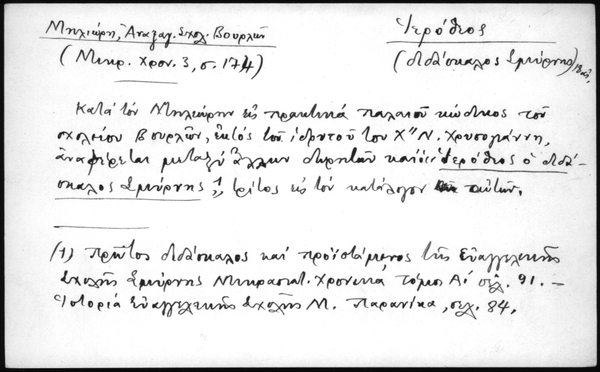 Μηλιώρη, Ἀναξαγ. Σχολ. Βουρλῶν
(Μικρ. Χρον. 3, σ. 174)
Ἱερόθεος
(διδάσκαλος Σμύρνης)
Κατά τόν Μηλιώρην εἰς πρακτικά παλαιοῦ κώδικος τοῦ
σχολείου Βουρλῶν, ἐκτός τοῦ ἱδρυτοῦ του Χ" Ν. Χρυσογιάννη,
ἀναφέρεται μεταξύ ἄλλων δωρητῶν καί "Ἱερόθεος ὁ διδά-
σκαλος Σμύρνης", τρίτος εἰς τόν κατάλογον αὐτῶν.
(1) Πρῶτος διδάσκαλος καί προϊστάμενος τῆς Εὐαγγελικῆς
Σχολῆς Σμύρνης Μικρασιατ. Χρονικά, τόμος Α' σελ. 91. –
Ἱστορία Εὐαγγελικῆς Σχολῆς Μ. Παρανίκα, σελ. 84.